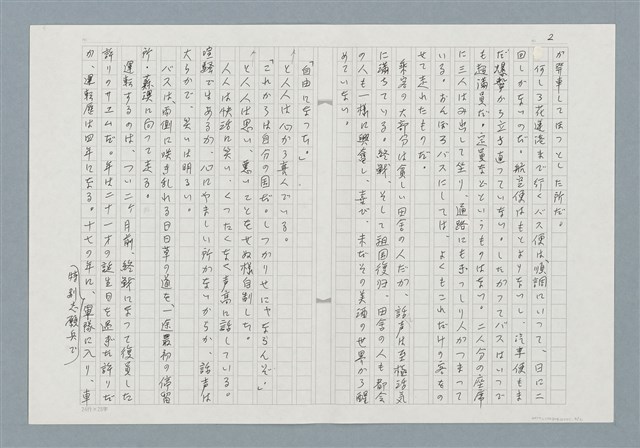 2
が発車してほつとした所だ。
何しろ花蓮港まで行くバス便は、順調にいつて、日に二
回しかないのだ。航空便はもとよりないし、汽車便もま
だ爆撃から立ち直つていない。したがつてバスはいつで
も超満員だ。定員などというものはない。二人分の座席
に三人はみ出して坐り、通路にもぎつしり人がつまつて
いる。おんぼろバスにしては、よくもこれだけの客をの
せて走れたものだ。
乗客の大部分は貧しい田舎の人だが、話声は至極活気
に満ちている。終戦、そして祖国復帰、田舎の人も都会
の人も一様に興奮し、喜び、未だその美酒の世界から醒
めていない。
「自由になつた。」
と人人は心から喜んでいる。
「これからは自分の国だ。しつかりせにやならんぞ」
と人人は思い、悪いことをせぬ様自制した。
人人は快活に笑い、くつたくなく声高に話している。
喧騒ではあるが、心にやましい所がないからか、話声は
大らかで、笑いは明るい。
バスは、両側に咲き乱れる日日草の道を、一途最初の停留
所、蘇澳に向つて走る。
運転するのは、つい二ケ月前、終戦になつて復員した
許りのサエムだ。年は二十一才の誕生日を過ぎた許りだ
が、運転歴は四年になる。十七の年に、軍隊に入り、車
(特別志願兵で)